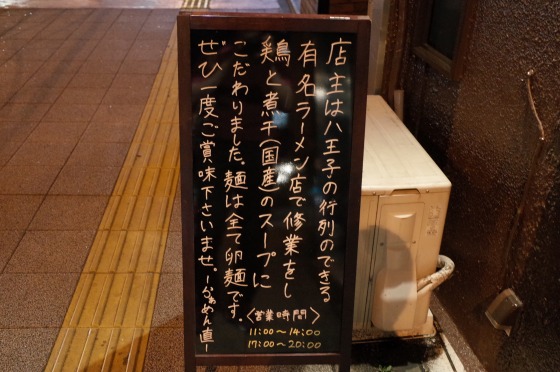 店主は八王子の行列のできる
有名ラーメン店で修業をし
鶏と煮干(国産)のスープに
こだわりました。麺は全て卵麺です。
ぜひ一度ご賞味下さいませ。ーらぁめん直ー
〈営業時間〉
11:00〜14:00
17:00〜20:00